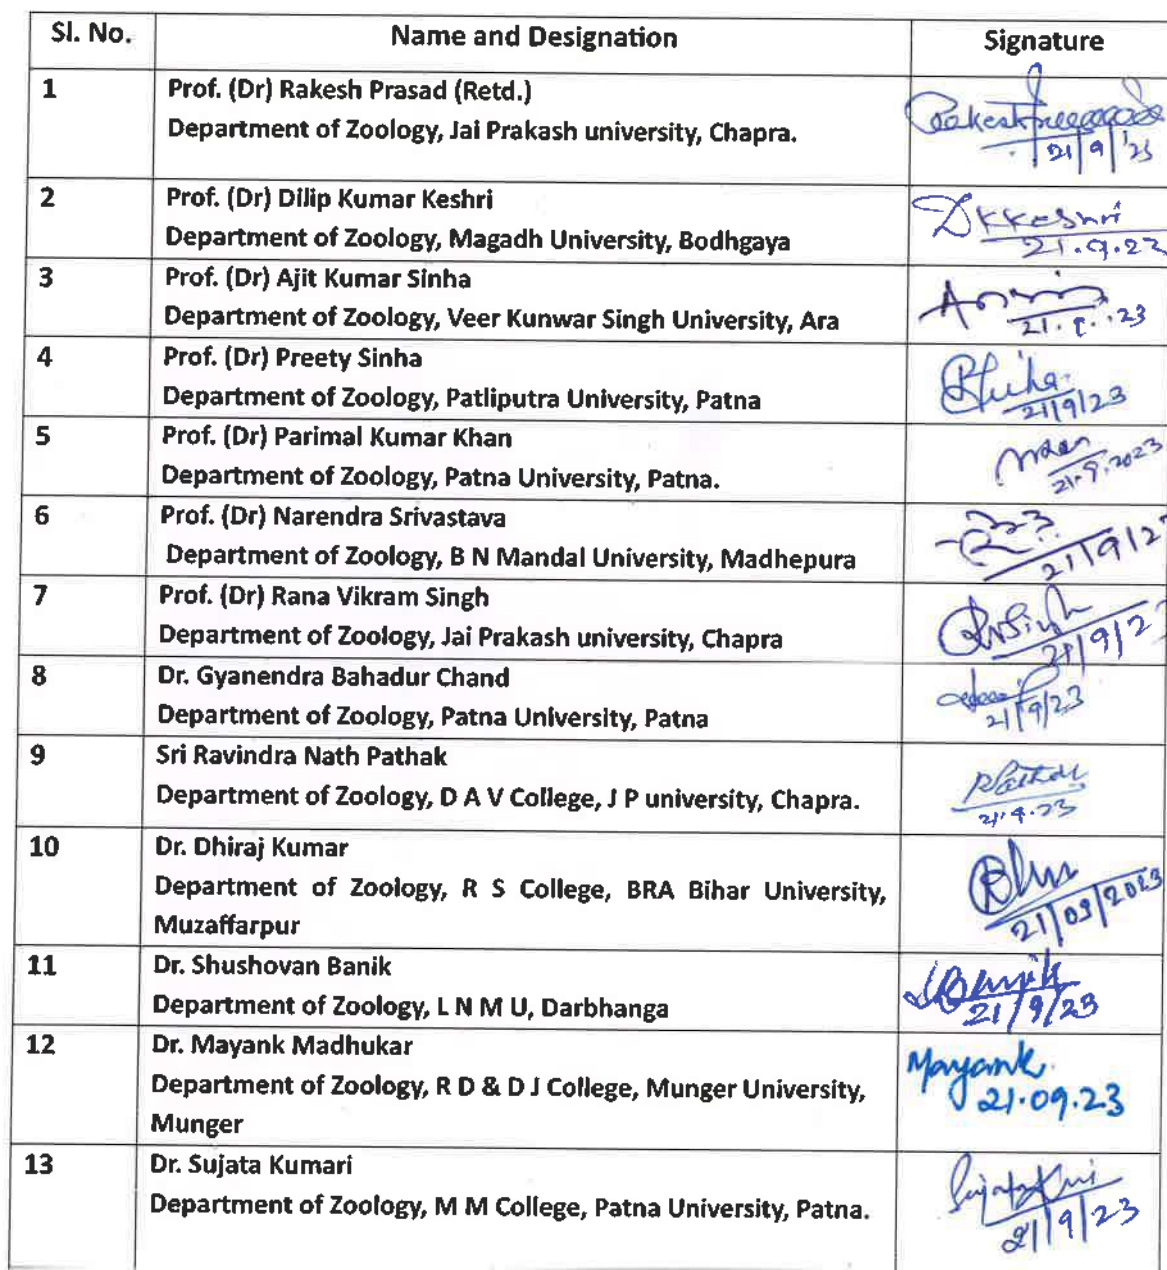 Sl. No. Name and Designation Signature
1 Prof. (Dr) Rakesh Prasad (Retd.)
Department of Zoology, Jai Prakash university, Chapra.
21/9/'23
2 Prof. (Dr) Dilip Kumar Keshri DKKeshri
Department of Zoology, Magadh University, Bodhgaya 21.9.23
3 Prof. (Dr) Ajit Kumar Sinha
Department of Zoology, Veer Kunwar Singh University, Ara
4 Prof. (Dr) Preety Sinha
Department of Zoology, Patliputra University, Patna 21/9/23
5 Prof. (Dr) Parimal Kumar Khan
Department of Zoology, Patna University, Patna. 21.9.2023
6 Prof. (Dr) Narendra Srivastava
Department of Zoology, B N Mandal University, Madhepura 21/9/2
7 Prof. (Dr) Rana Vikram Singh RVSingh
Department of Zoology, Jai Prakash university, Chapra 21/9/2
8 Dr. Gyanendra Bahadur Chand
Department of Zoology, Patna University, Patna 21/9/23
9 Sri Ravindra Nath Pathak
Department of Zoology, D A V College, J P university, Chapra. 21.9.23
10 Dr. Dhiraj Kumar
Department of Zoology, R S College, BRA Bihar University,
Muzaffarpur 21/09/2023
11 Dr. Shushovan Banik SBanik
Department of Zoology, L N M U, Darbhanga 21/9/23
12 Dr. Mayank Madhukar Mayank
Department of Zoology, R D & D J College, Munger University, 21.09.23
Munger
13 Dr. Sujata Kumari
Department of Zoology, M M College, Patna University, Patna. 21/9/23